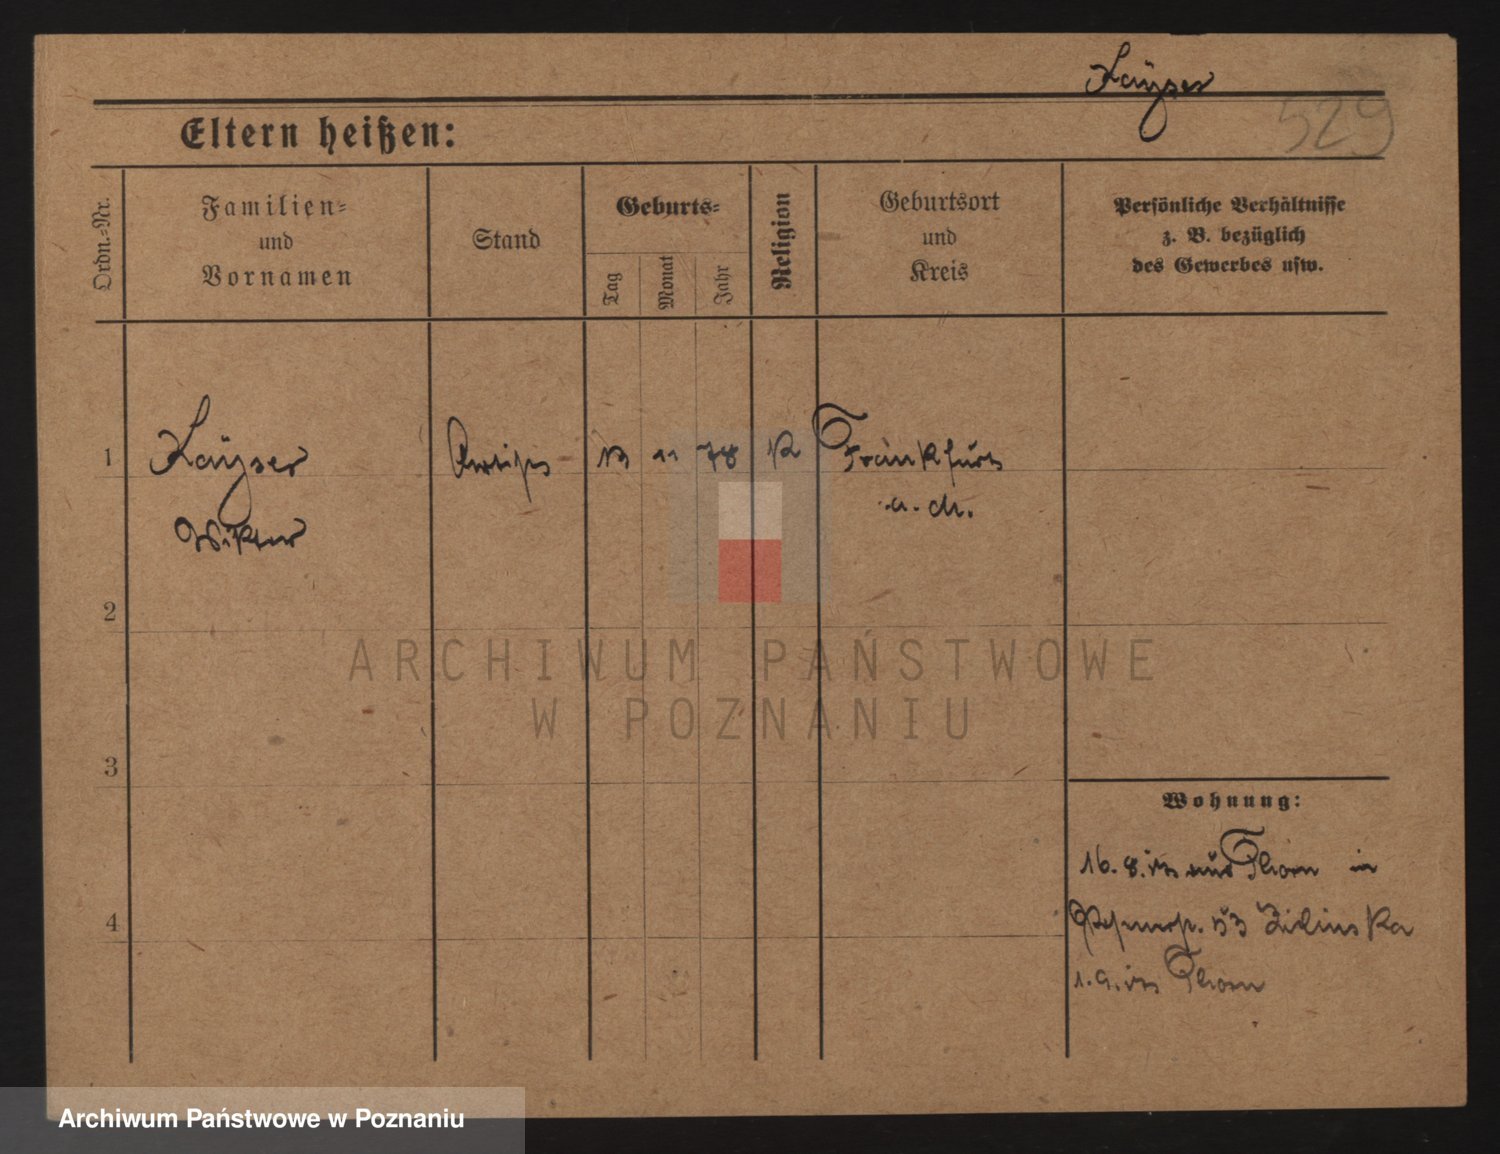 Kayser
529
Eltern heißen:
Ordn.-Nr.
Familien-
und
Vornamen
Stand
Geburts-
Tag
Monat
Jahr
Religion
Geburtsort
und
Kreis
Persönliche Verhältnisse
z. B. bezüglich
des Gewerbes usw.
1
Kayser
Artist
13 11 78 K Frankfurt
a. M.
Wiktor
2
ARCHIWUM PAŃSTWOWE
W POZNANIU
3
Wohnung:
16. 8. Thorn in
4
53
1. 9. Thorn
Archiwum Państwowe w Poznaniu